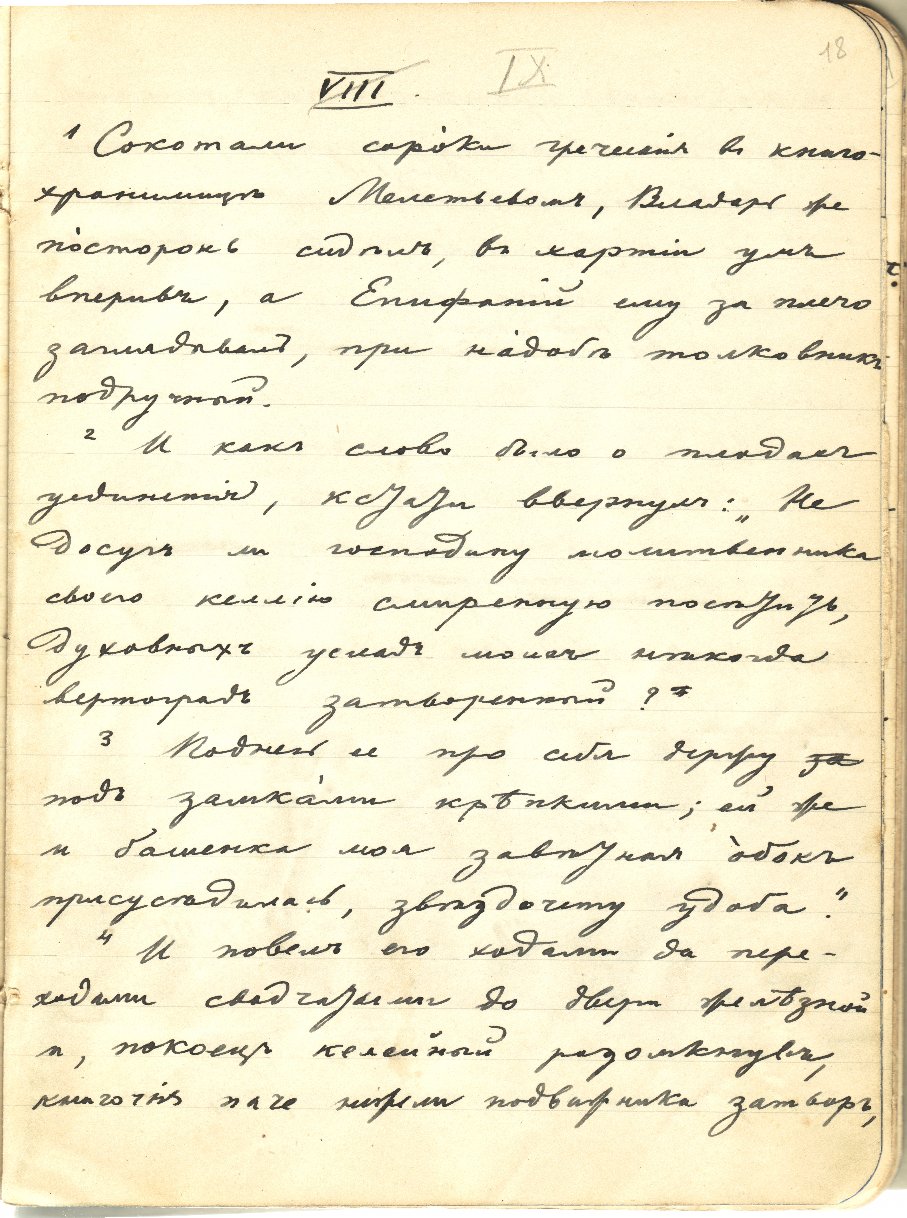 18
VIII. IX
1 Сокотали соро́ки греческія въ книго-
хранилищѣ Мелетьевомъ, Владарь же
по́сторонь сидѣлъ, въ хартіи умъ
вперивъ, а Епифаній ему за плечо
заглядывалъ, при на́добѣ толковникъ
подручный.
2 И какъ слово было о плодахъ
уединенія, кстати ввернулъ: „Не
досугъ ли господину молитвенника
своего келлію смиренную посѣтить,
духовныхъ усладъ моихъ нѣкогда
вертоградъ затворенный?"
3 Поднесь ее про себя держу за
подъ замка́ми крѣпкими; ей же
и башенка моя завѣтная о́бокъ
присусѣдилась, звѣздочету удоба."
4 И повелъ его ходами да пере-
ходами сводчатыми до двери желѣзной
и, покоецъ келейный разомкнувъ,
книгочія паче нежели подвижника затворъ,